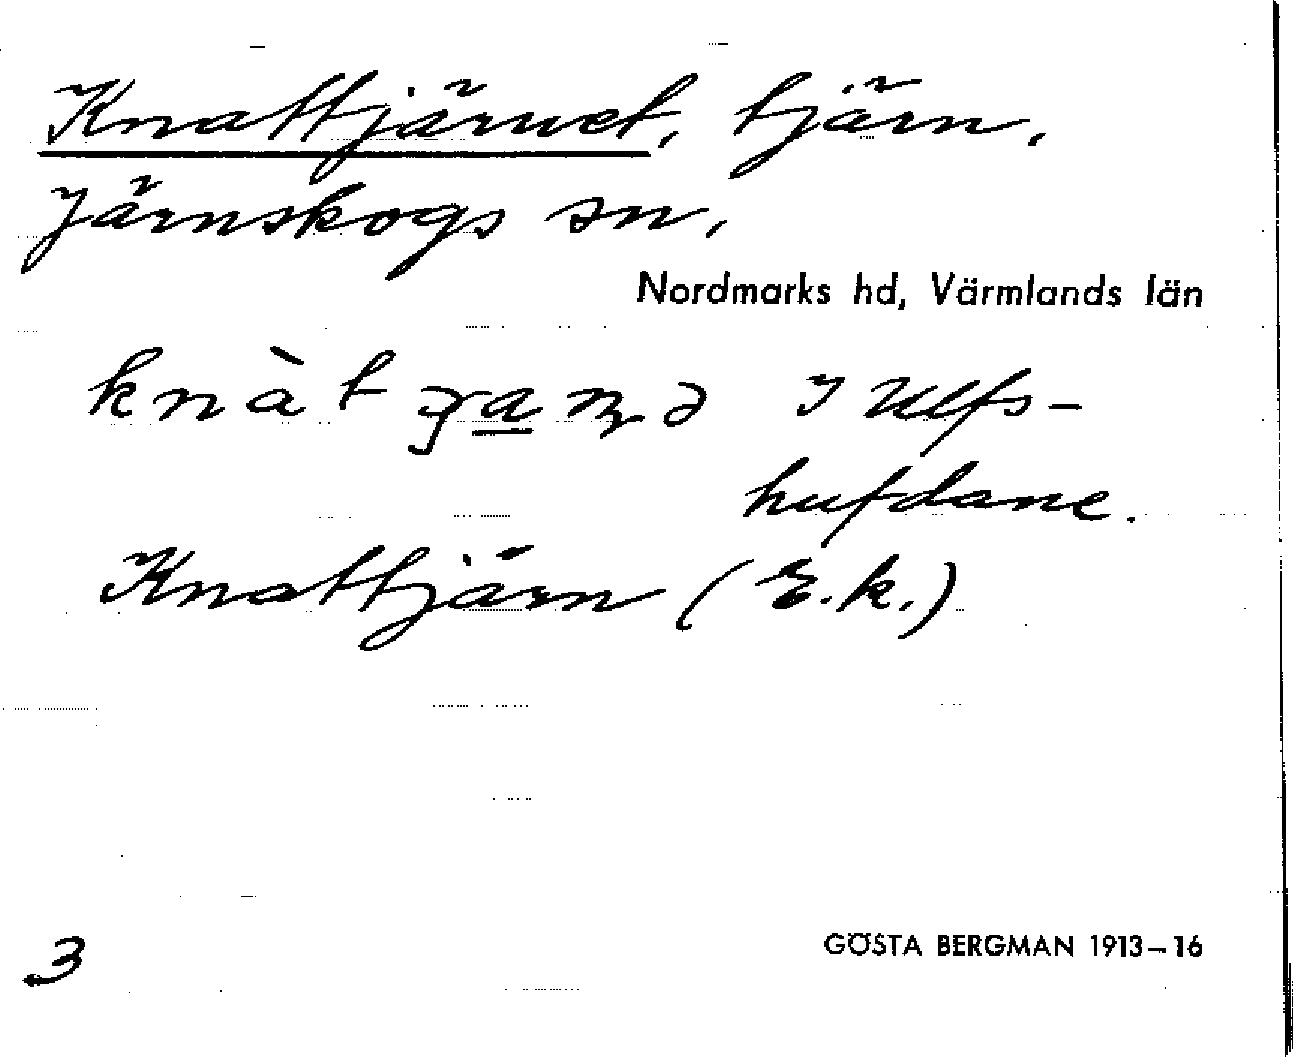 Knattjärnet, tjärn,
Järnskogs sn,
Nordmarks hd, Värmlands län
knàt ꝫa̲ɳə I Ulfs-
hufdane.
Knattjärn (E.k.)
3
GÖSTA BERGMAN 1913–16